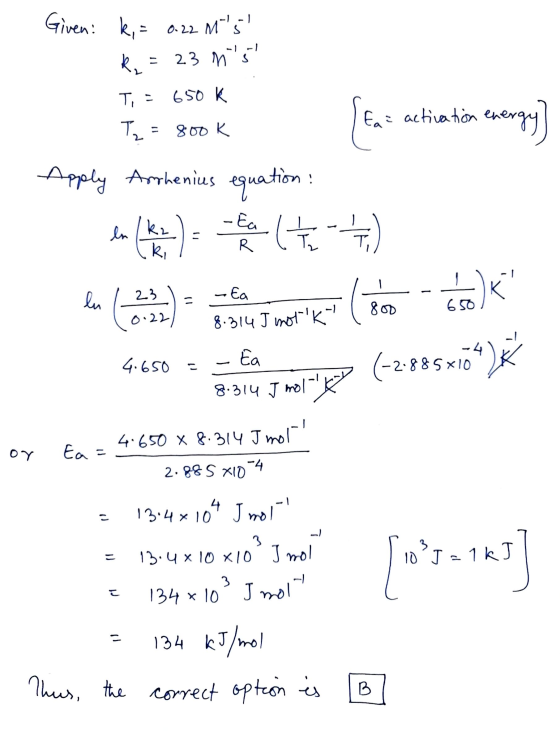 Given: k₁ = 0.22 M⁻¹s⁻¹
k₂ = 23 M⁻¹s⁻¹
T₁ = 650 K
T₂ = 800 K
[Ea = activation energy]
Apply Arrhenius equation:
ln (k₂/k₁) = -Ea/R (1/T₂ - 1/T₁)
ln (23/0.22) = -Ea/8.314 J mol⁻¹K⁻¹ (1/800 - 1/650) K⁻¹
4.650 = -Ea/8.314 J mol⁻¹K⁻¹ (-2.885×10⁻⁴) K⁻¹
or Ea = 4.650 × 8.314 J mol⁻¹/2.885 ×10⁻⁴
= 13.4 × 10⁴ J mol⁻¹
= 13.4 × 10 ×10³ J mol⁻¹ [10³ J = 1 kJ]
= 134 × 10³ J mol⁻¹
= 134 kJ/mol
Thus, the correct option is B